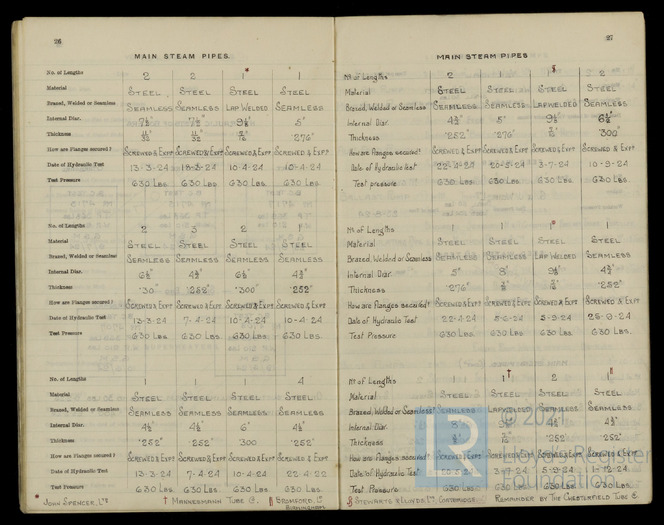 26
MAIN STEAM PIPES.
No. of Lengths 2 2 1* 1
Material STEEL STEEL STEEL STEEL
Brazed, Welded or Seamless SEAMLESS SEAMLESS LAP WELDED SEAMLESS
Internal Diar. 7½" 7½" 9½" 5"
Thickness 11/32 11/32 .276"
How are Flanges secured? SCREWED & EXPD SCREWED & EXPD SCREWED & EXPD SCREWED & EXPD
Date of Hydraulic Test 13-3-24 18-3-24 10-4-24 10-4-24
Test Pressure 630 LBS. 630 LBS. 630 LBS. 630 LBS
No. of Lengths 2 3 2 1
Material STEEL STEEL STEEL STEEL
Brazed, Welded or Seamless SEAMLESS SEAMLESS SEAMLESS SEAMLESS
Internal Diar. 6½" 4½" 6½" 4½"
Thickness .30" .252" .300" .252"
How are Flanges secured? SCREWED & EXPT SCREWED & EXPT SCREWED & EXPT SCREWED & EXPT
Date of Hydraulic Test 13-3-24 7-4-24 10-4-24 10-4-24
Test Pressure 630 LBS. 630 LBS. 630 LBS. 630 LBS.
No. of Lengths 1 1 1 4
Material STEEL STEEL STEEL STEEL
Brazed, Welded or Seamless SEAMLESS SEAMLESS SEAMLESS SEAMLESS
Internal Diar. 4½" 4½" 6" 4½"
Thickness .252" .252" .300 .252"
How are Flanges secured? SCREWED & EXPT SCREWED & EXPT SCREWED & EXPT SCREWED & EXPT
Date of Hydraulic Test 13-3-24 7-4-24 10-4-24 22-4-22
Test Pressure 630 LBS. 630 LBS. 630 LBS. 630 LBS.
* JOHN SPENCER, LTD † MANNESMANN TUBE Co. BROMFORD, LD
BIRMINGHAM
27
MAIN STEAM PIPES
No of Lengths 2 1 1 2
Material STEEL STEEL STEEL STEEL
Brazed, Welded or Seamless SEAMLESS SEAMLESS LAPWELDED SEAMLESS
Internal Diar 4½" 5" 9½" 6½"
Thickness .252" .276" .300"
How are flanges secured? SCREWED & EXPT SCREWED & EXPT SCREWED & EXPT SCREWED & EXPT
Date of Hydraulic Test 22-4-24 20-5-24 3-7-24 10-9-24
Test pressure 630 LBS. 630 LBS. 630 LBS. 630 LBS
No of Lengths 1 1 1* 1
Material STEEL STEEL STEEL STEEL
Brazed, Welded or Seamless SEAMLESS SEAMLESS LAP WELDED SEAMLESS
Internal Diar 5" 8" 9½" 4½"
Thickness .276" .252"
How are flanges secured? SCREWED & EXPT SCREWED & EXPT SCREWED & EXPT SCREWED & EXPT
Date of Hydraulic Test 22-4-24 5-6-24 5-9-24 25-9-24
Test Pressure 630 LBS. 630 LBS. 630 LBS. 630 LBS.
No of Lengths 1 1† 2 1
Material STEEL STEEL STEEL STEEL
Brazed, Welded or Seamless SEAMLESS LAPWELDED SEAMLESS SEAMLESS
Internal Diar. 8" 4½" 4½"
Thickness .252" .252"
How are flanges secured? SCREWED & EXPT SCREWED & EXPT SCREWED & EXPT SCREWED & EXPT
Date of Hydraulic Test 3-7-24 5-9-24 1-12-24
Test Pressure 630 LBS. 630 LBS. 630 LBS. 630 LBS.
§ STEWARTS & LLOYDS, LTD, COATBRIDGE. REMAINDER BY THE CHESTERFIELD TUBE Co.
LR
© 2021
Lloyd's Register
Foundation